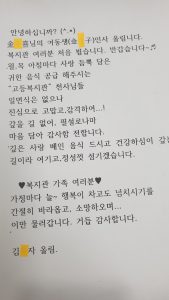 안녕하십니까? (^.*)
金 喜님의 여동생(金 子)인사 올립니다.
복지관 여러분 처음 뵙습니다. 반갑습니다~♬
월,목 아침마다 사랑 듬뿍 담은
귀한 음식 공급 해주시는
"고등복지관" 천사님들
일면식은 없으나
진심으로 고맙고,감격하여...!
갚을 길 없어, 필설로나마
마음 담아 감사함 전합니다.
'깊은 사랑 배인 음식 드시고 건강하심이 갚는
길이라 여기고,정성껏 섬기겠습니다.
♥복지관 가족 여러분♥
가정마다 늘~ 행복이 차고도 넘치시기를
간절히 바라옵고, 소망하오며...
이만 물러갑니다. 거듭 감사합니다.
김 자 올림.